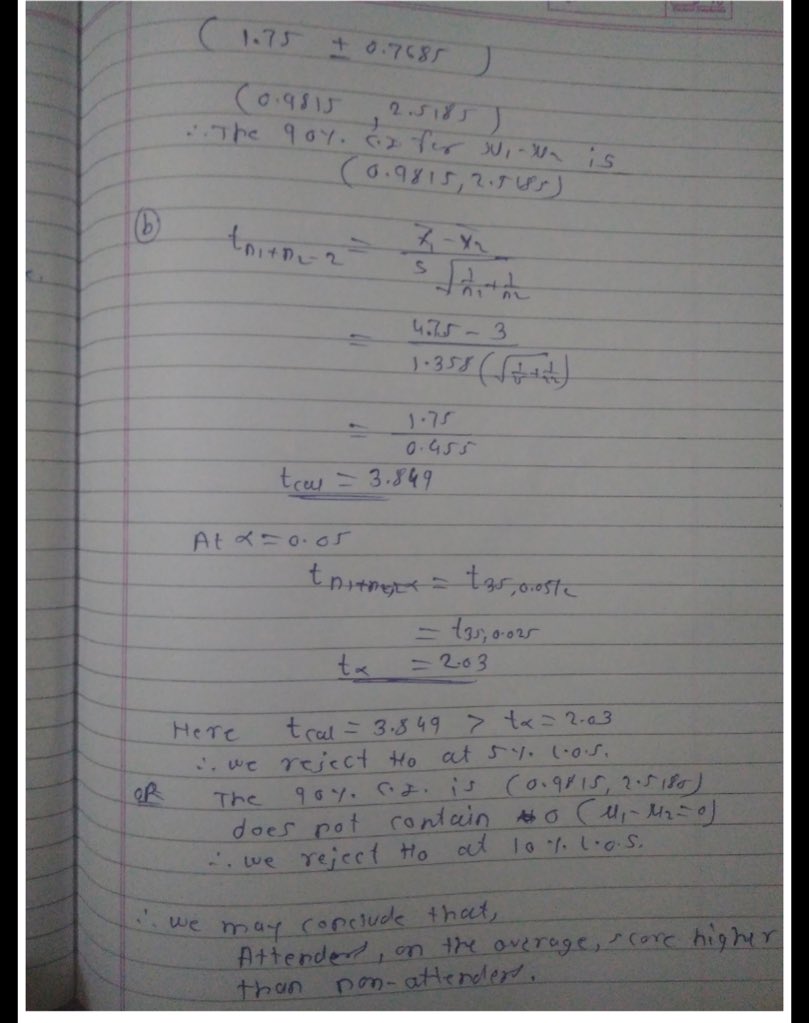 ( 1.75 ± 0.7685 )
(0.9815 , 2.5185)
∴ The 90%. C.I for μ1-μ2 is
(0.9815, 2.5185)
(b) t n1+n2-2 = x̄1 - x̄2 / s √(1/n1 + 1/n2)
= 4.75 - 3 / 1.358 (√(1/15 + 1/22))
= 1.75 / 0.455
tcal = 3.849
At α = 0.05
= t35, 0.05/2
= t35, 0.025
tα = 2.03
Here tcal = 3.849 > tα = 2.03
∴ we reject Ho at 5%. l.o.s.
OR The 90%. C.I. is (0.9815, 2.5185)
does not contain 0 (μ1-μ2=0)
∴ we reject Ho at 10%. l.o.s.
∴ we may conclude that,
Attenders, on the average, score higher
than non-attenders.